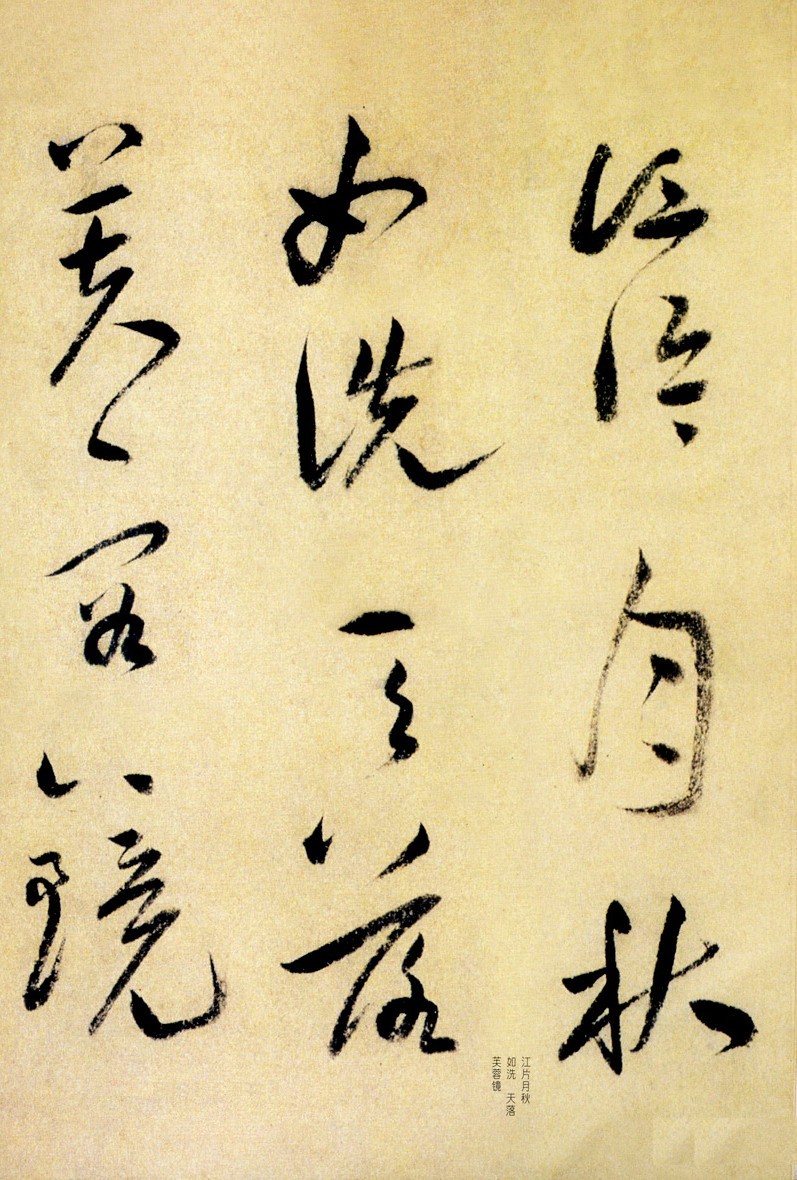 江月秋
如洗天落
芙蓉鏡
江片月秋
如洗　天落
芙蓉镜